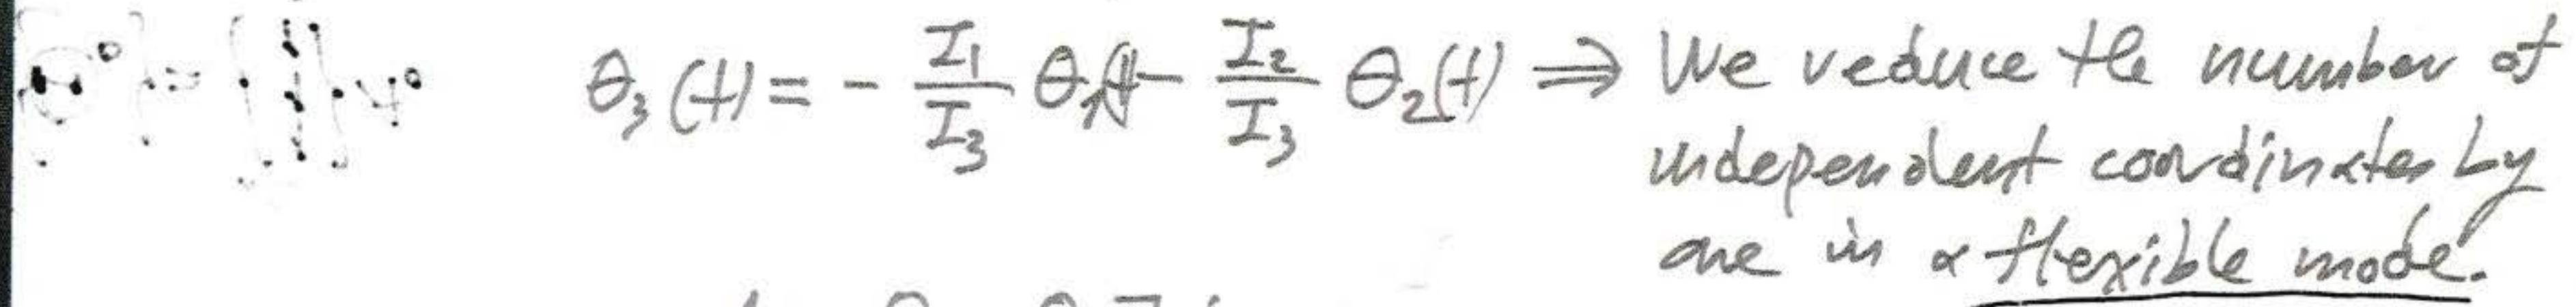 θ₃(t) = - I₁/I₃ θ₁(t) - I₂/I₃ θ₂(t) ⇒ We reduce the number of
independent coordinates by
one in a flexible mode.